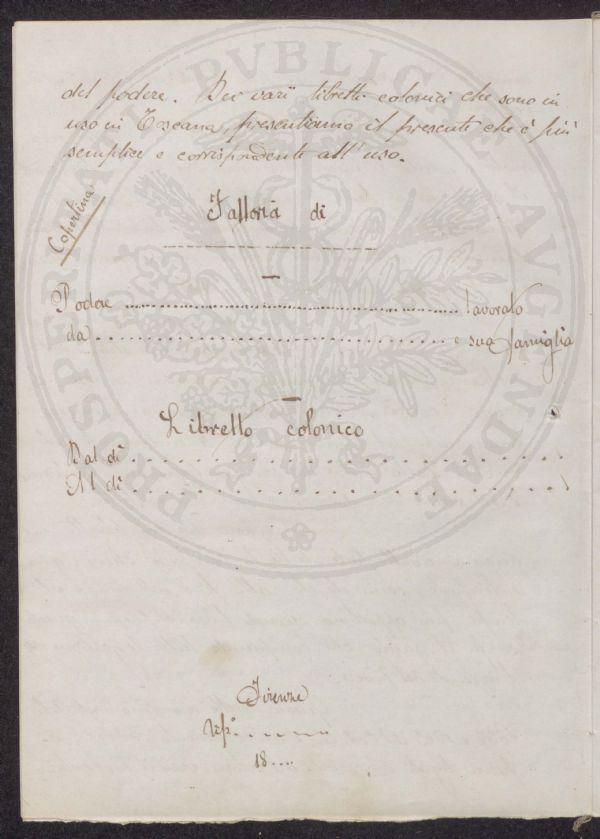 del podere. Dei varii libretti colonici che sono in
uso in Toscana, presentiamo il presente che è più
semplice e corrispondente all'uso.
Copertina
Fattoria di
Podere .......... lavorato
da .......... e sua famiglia
Libretto colonico
Dal dì ..........
Al dì ..........
Firenze
18....
PROSPERITATI PUBLICAE AUGENDAE